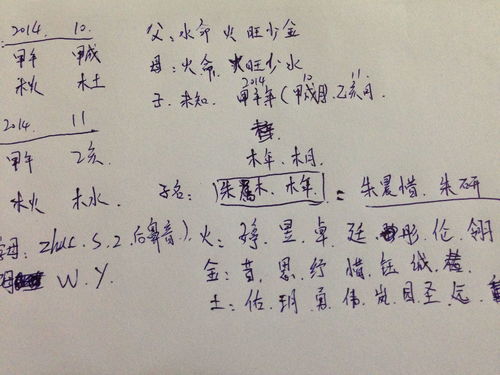 2014. 10.
甲午 甲戌
木火 木土
2014. 11
甲午 乙亥
木火 木水
父:水命 火旺少金
母:火命 火旺少水
子:未知. 2014 甲午年(10 甲戌月. 11 乙亥月.
木年.木月.
子名: 朱属木.木年. = 朱晨惜.朱研
字母: zhcs.s.z.后鼻音) 火: 昱.卓.廷.彤.伦.翎
W.Y. 金: 思.纾.惜.钰.城.
土: 佑.玥.勇.伟.岚.圣.远.